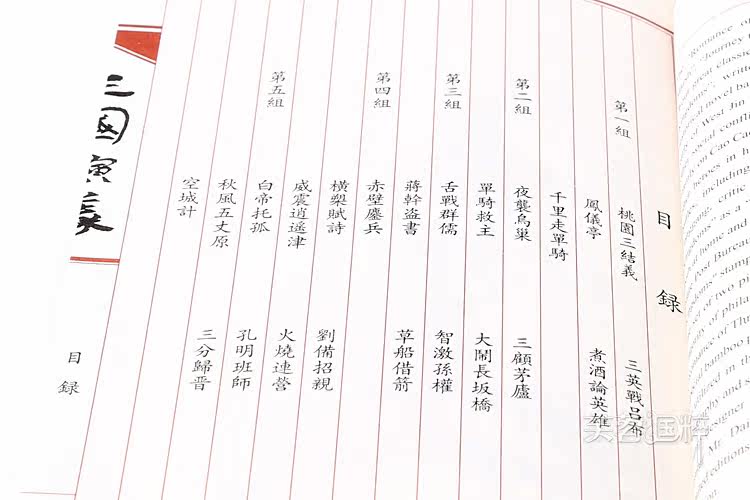 目録
第一組 桃園三結義 三英戰呂布
鳳儀亭 煮酒論英雄
千里走單騎
第二組 夜襲烏巢 三顧茅廬
單騎救主 大鬧長坂橋
第三組 舌戰群儒 智激孫權
蔣幹盜書 草船借箭
第四組 赤壁鏖兵
橫槊賦詩 劉備招親
威震逍遙津 火燒連營
第五組 白帝托孤 孔明班師
秋風五丈原 三分歸晉
空城計
三國演義
目録
Romance
Journey
great classic
novel
West Jin
Cao Cao
including
critic
home and
Post Bureau
of two
bamboo
Mr. Dai
editions